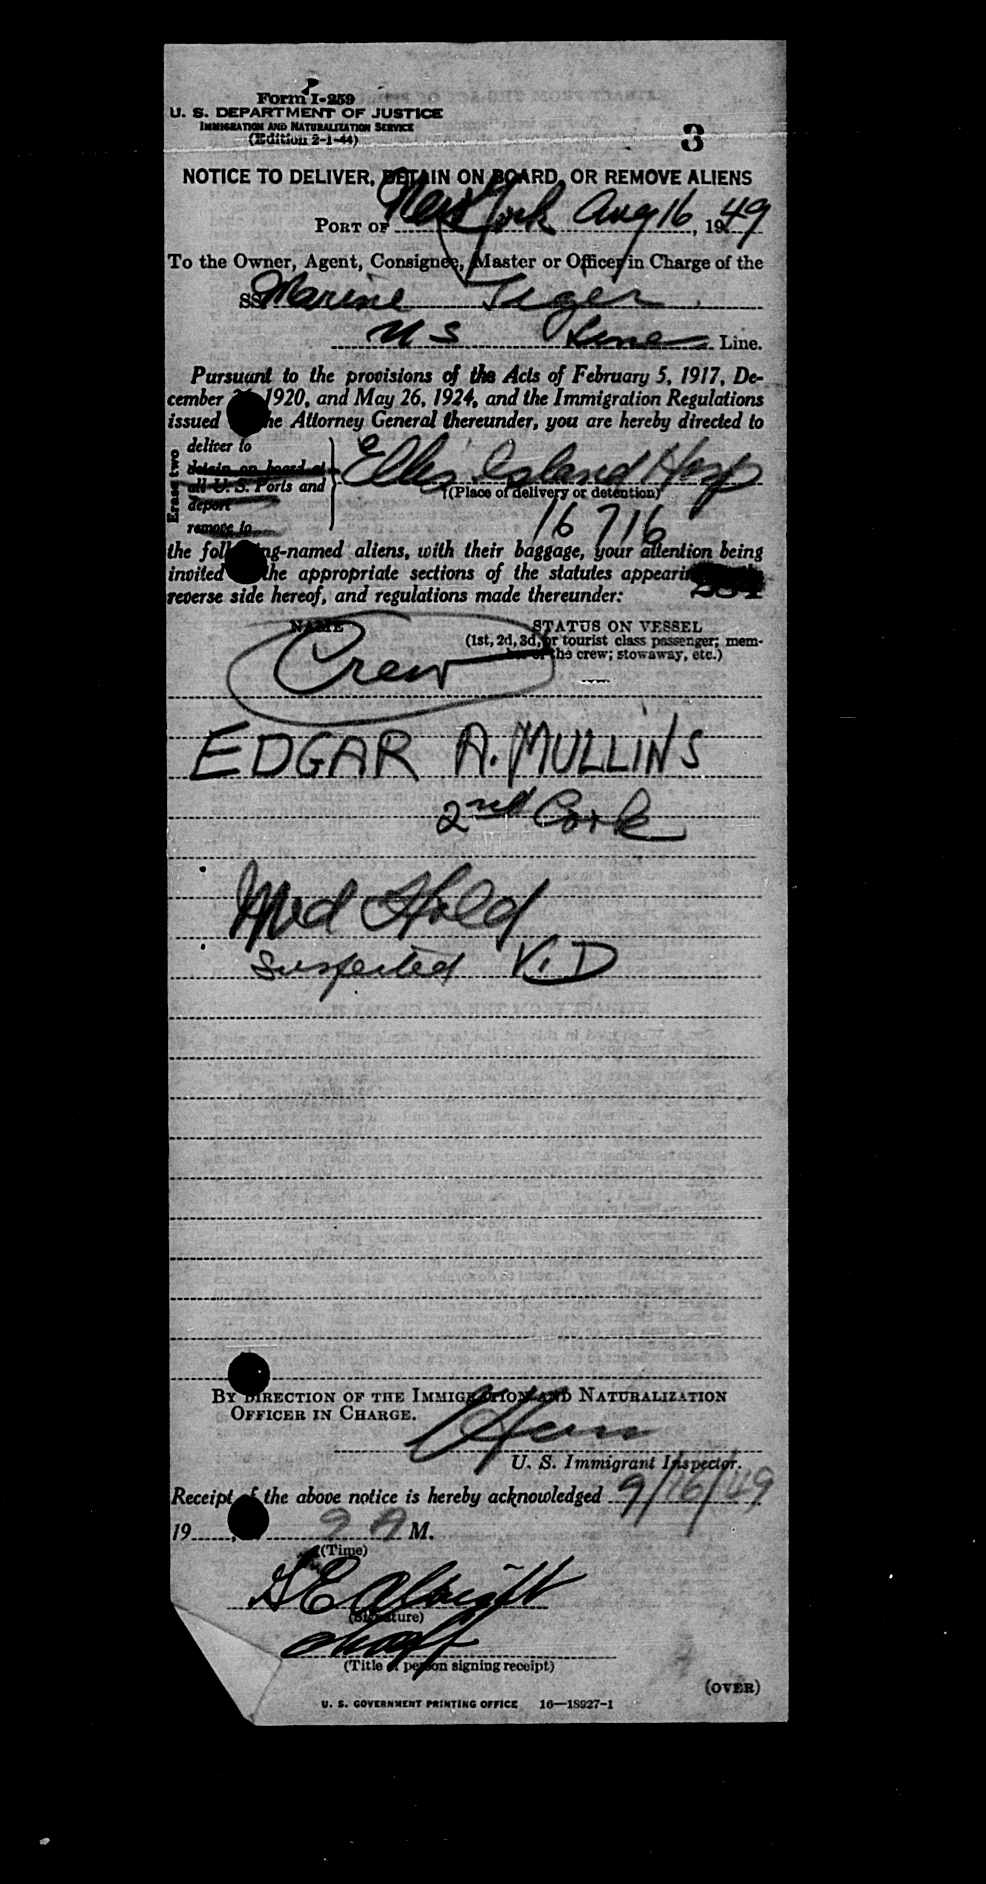 Form I-259
U. S. DEPARTMENT OF JUSTICE
IMMIGRATION AND NATURALIZATION SERVICE
(Edition 2-1-44)
3
NOTICE TO DELIVER, DETAIN ON BOARD, OR REMOVE ALIENS
PORT OF New York Aug 16, 1949
To the Owner, Agent, Consignee, Master or Officer in Charge of the
SS Marine Tiger
U S Lines Line.
Pursuant to the provisions of the Acts of February 5, 1917, De-
cember 1920, and May 26, 1924, and the Immigration Regulations
issued the Attorney General thereunder, you are hereby directed to
Erase two
deliver to
detain on board at
all U. S. Ports and
deport
remove to
Ellis Island Hosp
(Place of delivery or detention)
16716
the following-named aliens, with their baggage, your attention being
invited the appropriate sections of the statutes appearing
reverse side hereof, and regulations made thereunder:
234
NAME
STATUS ON VESSEL
(1st, 2d, 3d, or tourist class passenger; mem-
ber of the crew; stowaway, etc.)
Crew
EDGAR A. MULLINS
2nd Cook
Med Hold
Suspected V.D
BY DIRECTION OF THE IMMIGRATION AND NATURALIZATION
OFFICER IN CHARGE.
U. S. Immigrant Inspector.
Receipt of the above notice is hereby acknowledged 9/16/49
19 9 A M.
(Time)
(Signature)
(Title of person signing receipt)
(OVER)
U. S. GOVERNMENT PRINTING OFFICE 16—18927-1